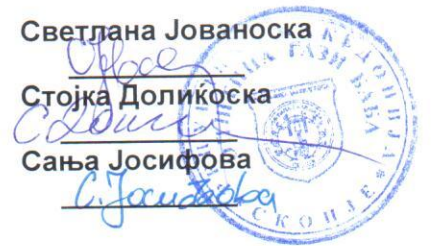 Светлана Јованоска
Стојка Долиќоска
Сања Јосифова
С. Јосифова
ГАЗИ БАБА
СКОПЈЕ